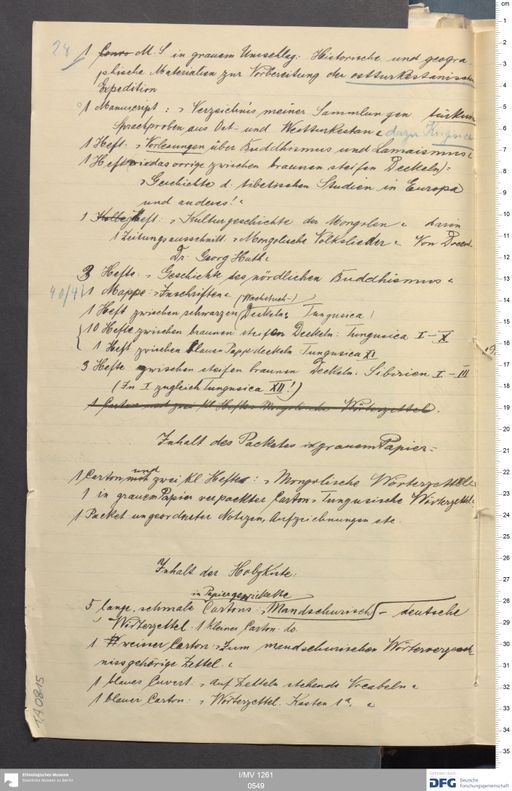 24
1 M. S in grauem Umschlag. Historische und geogra-
phische Materialien zur Vorbereitung der ostturkestanischen
Expedition
1 Manuscript: „Verzeichnis meiner Sammlungen türkischer
Sprachproben aus Ost- und Westturkestan“
1 Heft: „Vorlesungen über Buddhismus und Lamaismus“
1 Heft wie das vorige zwischen braunen steifen Deckeln):
„Geschichte d. tibetischen Studien in Europa
und anderes!“
1 Heft: „Kulturgeschichte der Mongolen“ darin
1 Zeitungsausschnitt: „Mongolische Volkslieder“. Von Docent
Dr. Georg Huth“
3 Hefte: „Geschichte des nördlichen Buddhismus“
40/41 1 Mappe: „Inschriften“ (Wachstuch-)
1 Heft zwischen schwarzen Deckeln: Tungusica!
10 Hefte zwischen braunen steifen Deckeln: Tungusica I–X
1 Heft zwischen blauen Pappdeckeln: Tungusica XI
3 Hefte zwischen steifen braunen Deckeln: Sibirien I–III
(In I zugleich Tungusica XII!)
1 Carton mit zwei kl. Heften Mongolische Wörterzettel.
Inhalt des Packetes in grauem Papier:
1 Carton und zwei kl. Hefte: „Mongolische Wörterzettel“
1 in grauem Papier verpackter Carton: „Tungusische Wörterzettel“
1 Packet ungeordneter Notizen, Aufzeichnungen etc.
Inhalt der Holzkiste:
in Papier gewickelte
5 lange, schmale Cartons: „Mandschurisch – deutsche
Wörterzettel. 1 kleiner Carton do.
1 weiner Carton: „Zum mandschurischen Wörterverzeich-
niss gehörige Zettel“
1 blaues Couvert: „auf Zetteln stehende Vocabeln“
1 blauer Carton: „Wörterzettel. Kasten 1a.“
1A0815
Ethnologisches Museum
Staatliche Museen zu Berlin
I/MV 1261
0549
DFG Deutsche
Forschungsgemeinschaft